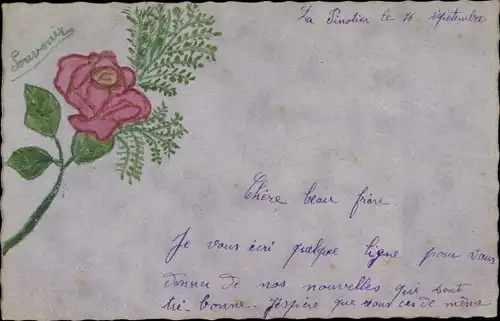 Souvenir
La Pinotier le 16 septembre
Chère beau frère
Je vous écri quelque ligne pour vous
donnu de nos nouvelles qui sont
tri-bonne. J'espère que vous es de même